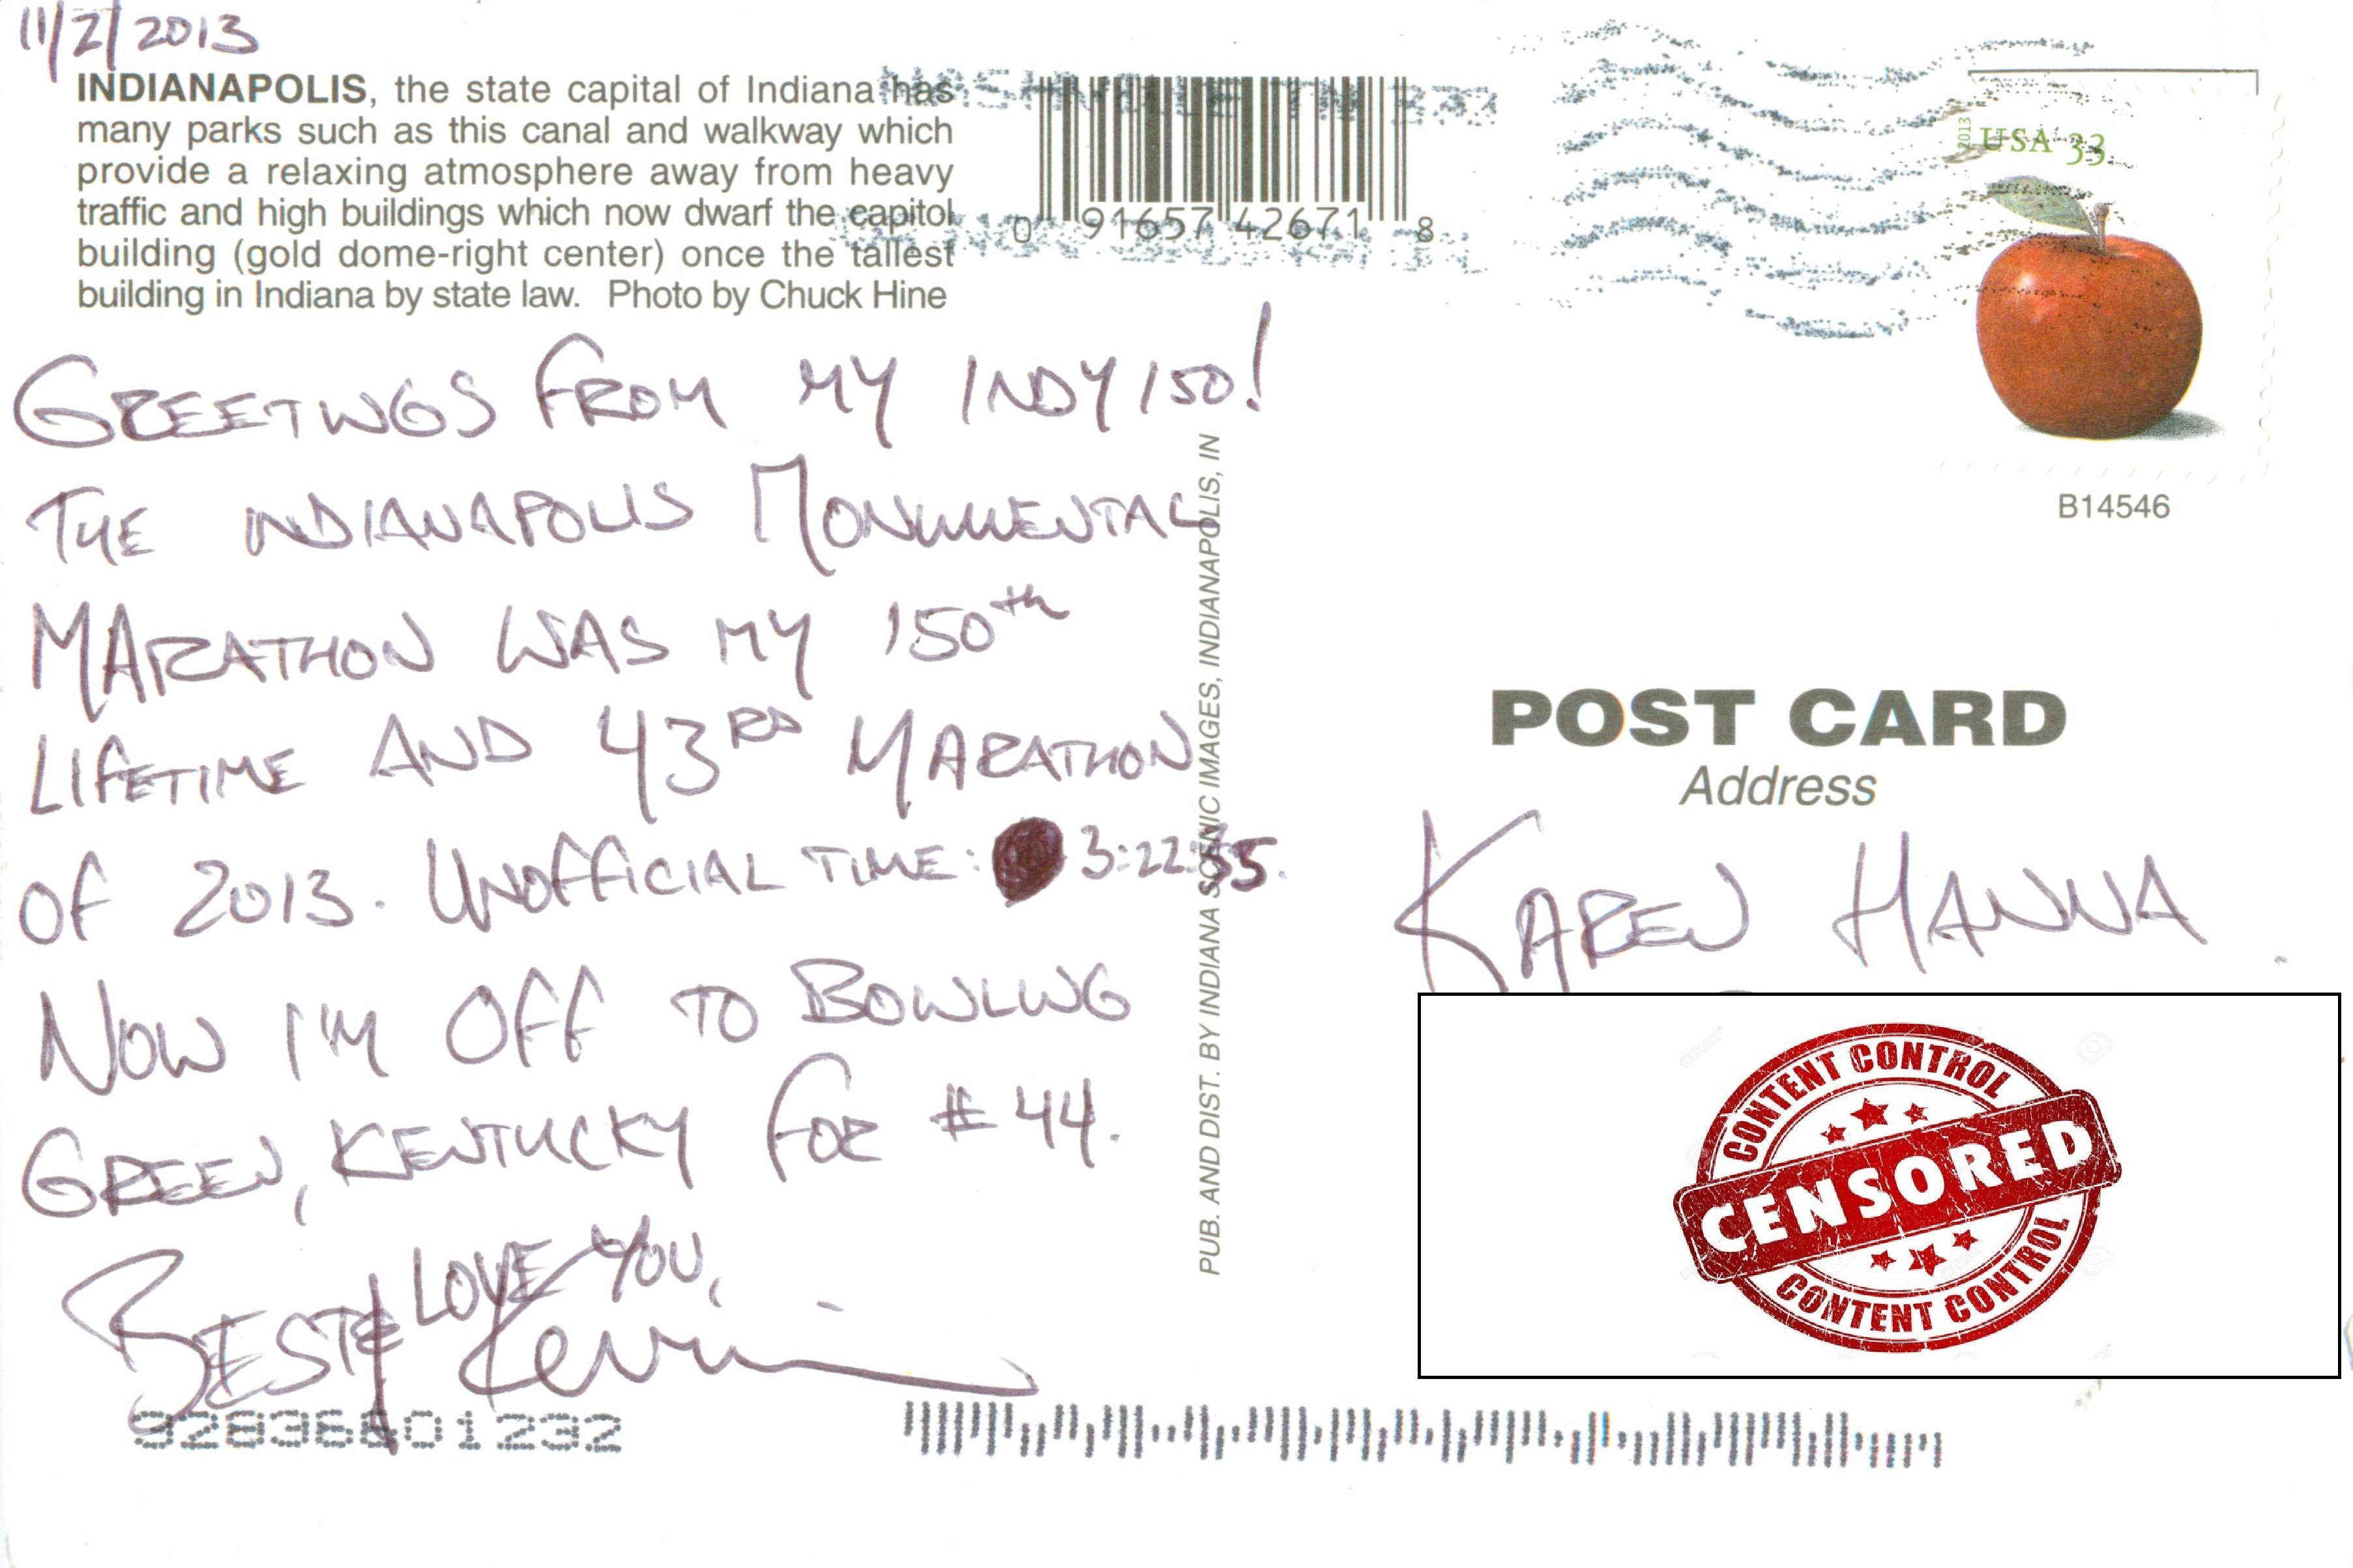 11/2/2013
INDIANAPOLIS, the state capital of Indiana has
many parks such as this canal and walkway which
provide a relaxing atmosphere away from heavy
traffic and high buildings which now dwarf the capitol
building (gold dome-right center) once the tallest
building in Indiana by state law. Photo by Chuck Hine
0 91657 42671 8
2013
USA 33
B14546
GREETINGS FROM MY INDY 150!
THE INDIANAPOLIS MONUMENTAL
MARATHON WAS MY 150th
LIFETIME AND 43RD MARATHON
OF 2013. UNOFFICIAL TIME: 3:22:35.
NOW I'M OFF TO BOWLING
GREEN, KENTUCKY FOR #44.
BEST & LOVE YOU,
Kevin
PUB. AND DIST. BY INDIANA SCENIC IMAGES, INDIANAPOLIS, IN
POST CARD
Address
KAREN HANNA
CONTENT CONTROL
CENSORED
CONTENT CONTROL